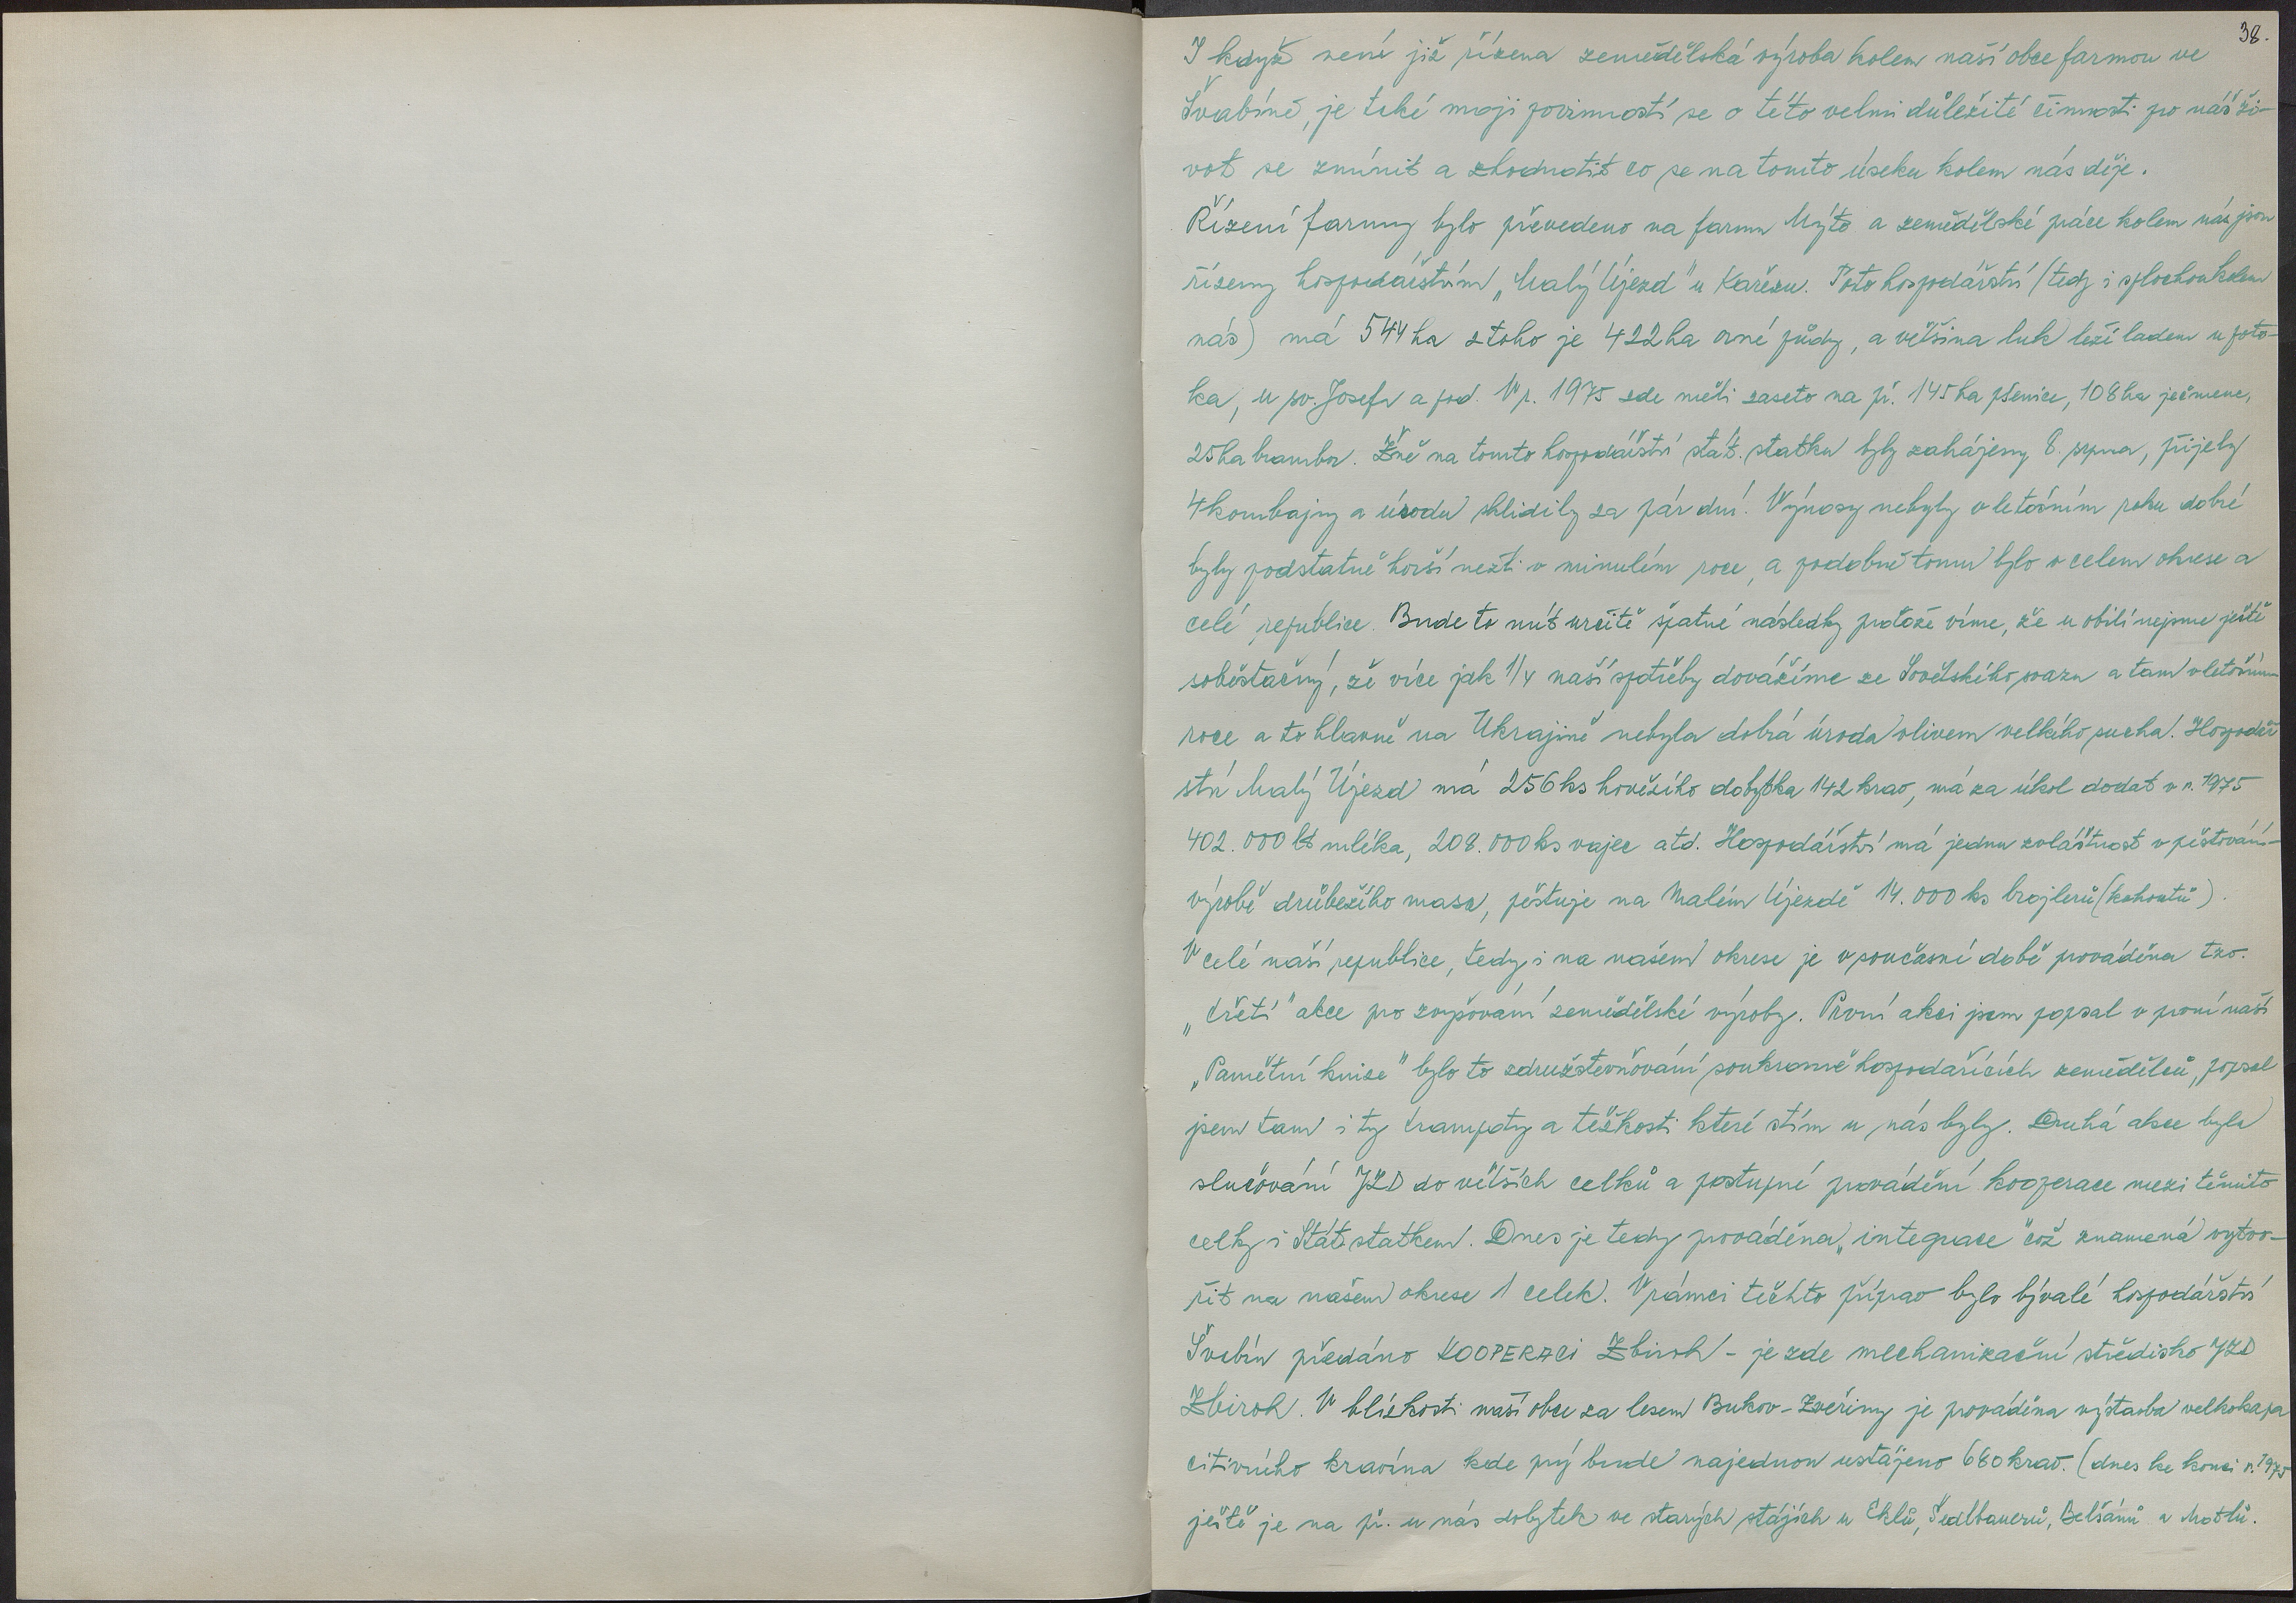 38.
I když není již řízena zemědělská výroba kolem naší obce farmou ve
Švabíně, je také mojí povinností se o této velmi důležité činnosti pro náš ži-
vot se zmínit a zhodnotit co se na tomto úseku kolem nás děje.
Řízení farmy bylo převedeno na farmu Mýto a zemědělské práce kolem nás jsou
řízeny hospodářstvím „Malý Újezd" u Kařezu. Toto hospodářství (tedy i s plochou kolem
nás) má 544 ha z toho je 422 ha orné půdy, a většina luk leží ladem u poto-
ka, u sv. Josefa a pod. V r. 1975 zde měli zaseto na př. 145 ha pšenice, 108 ha ječmene,
25 ha brambor. Žně na tomto hospodářství stát. statku byly zahájeny 8. srpna, přijely
4 kombajny a úrodu sklidily za pár dní. Výnosy nebyly v letošním roku dobré
byly podstatně horší nežli v minulém roce, a podobně tomu bylo v celem okrese a
celé republice. Bude to mít určitě špatné následky protože víme, že u obilí nejsme ještě
soběstačný, že více jak 1/4 naší spotřeby dovážíme ze Sovětského svazu a tam v letošním
roce a to hlavně na Ukrajině nebyla dobrá úroda vlivem velkého sucha. Hospodář
ství Malý Újezd má 256 ks hovězího dobytka 142 krav, má za úkol dodat v r. 1975
402.000 lt mléka, 208.000 ks vajec atd. Hospodářství má jednu zvláštnost v pěstování-
výrobě drůbežího masa, pěstuje na Malém Újezdě 14.000 ks brojlerů (kohoutů).
V celé naší republice, tedy i na našem okrese je v současné době prováděna tzv.
„třetí" akce pro zvyšování zemědělské výroby. První akci jsem popsal v první naší
„Pamětní knize" bylo to združstevňování soukromě hospodařících zemědělců, popsal
jsem tam i ty trampoty a těžkosti které stím u nás byly. Druhá akce byla
slučování JZD do větších celků a postupné provádění kooperace mezi těmito
celky i Stát. statkem. Dnes je tedy prováděna „integrace" což znamená vytvo-
řit na našem okrese 1 celek. V rámci těchto příprav bylo bývalé hospodářství
Švabín předáno KOOPERACI Zbiroh - je zde mechanizační středisko JZD
Zbiroh. V blízkosti naší obce za lesem Bukov-Zvěřiny je prováděna výstavba velkokapa
citivního kravína kde prý bude najednou ustájeno 680 krav. (dnes ke konci r. 1975
ještě je na př. u nás dobytek ve starých stájích u Eklů, Šedlbauerů, Belšánů a Motlů.